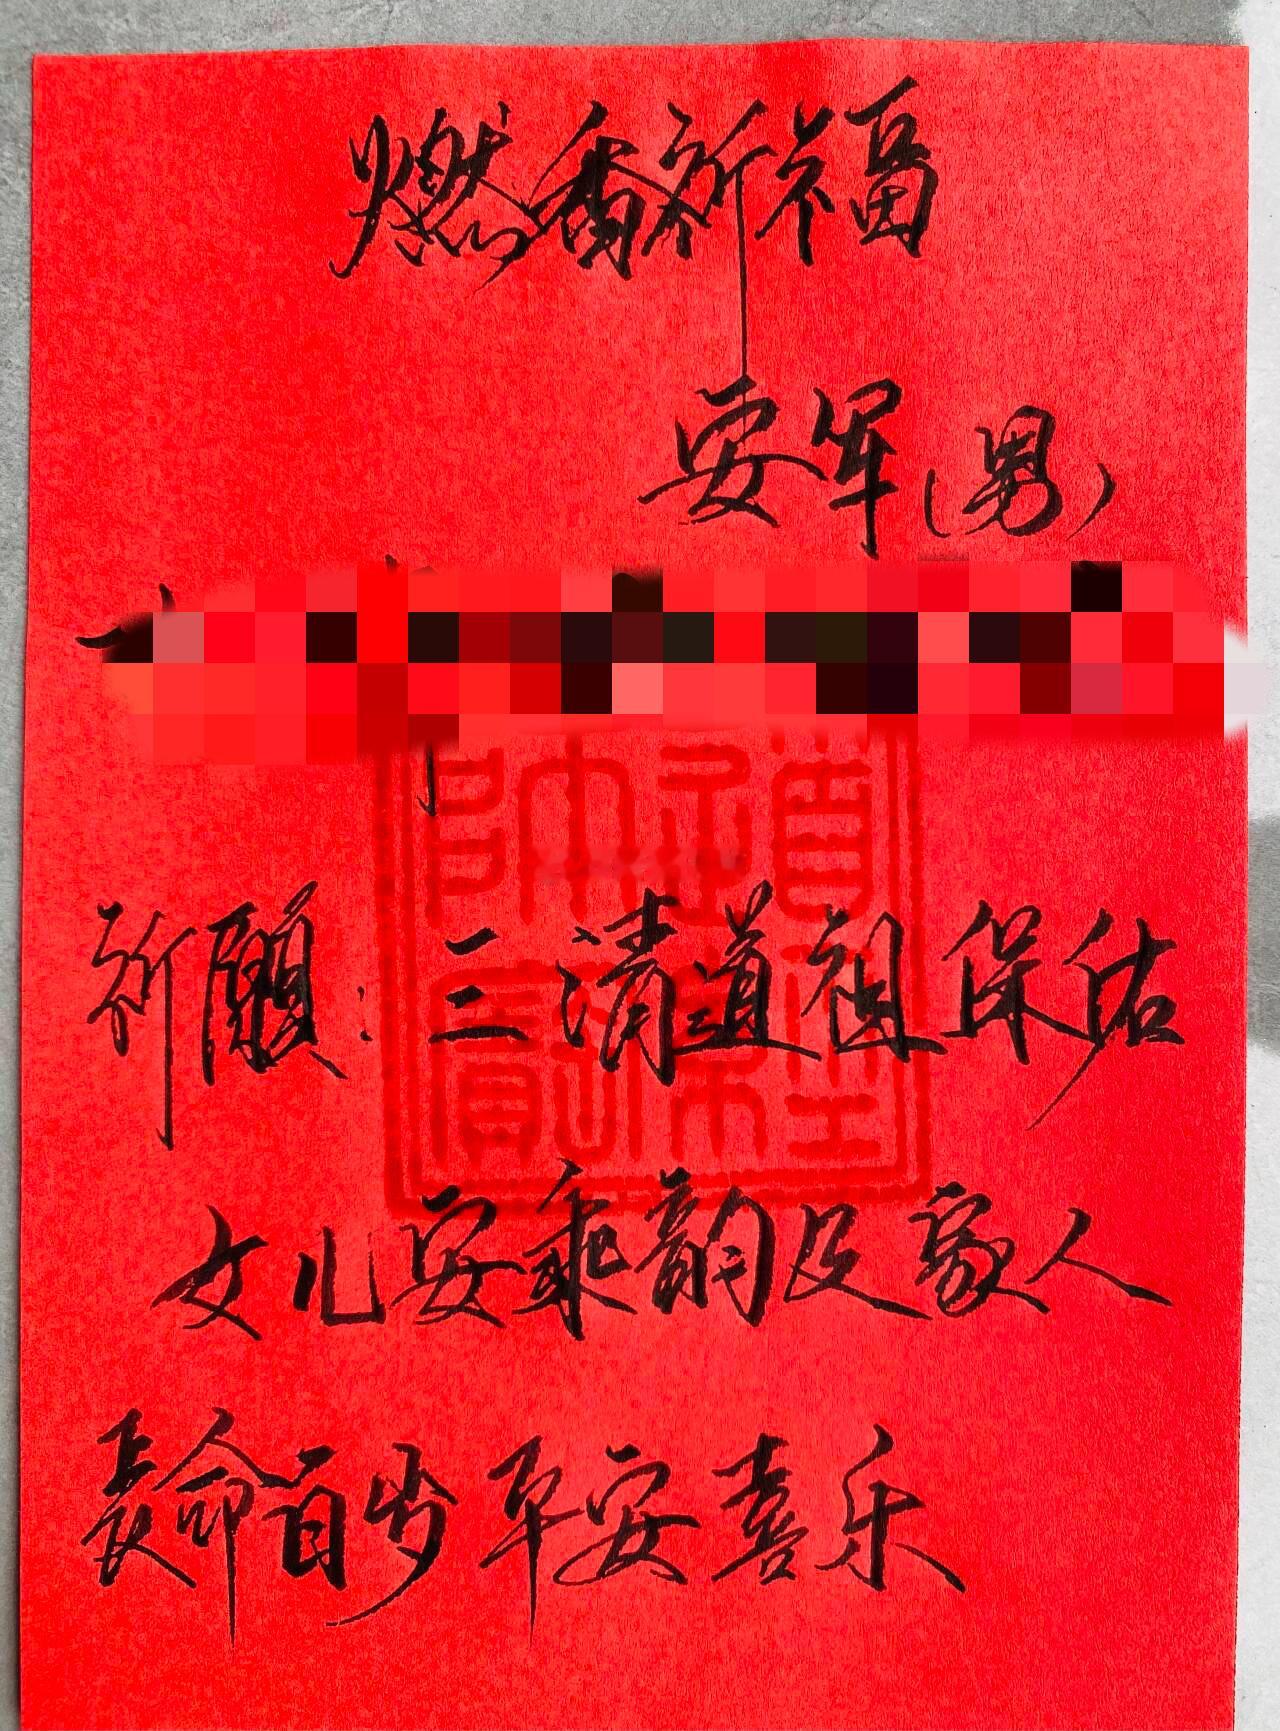 燃香祈福
安军(男)
祈願:三清道祖保佑
女儿安乘韵及家人
長命百岁平安喜乐